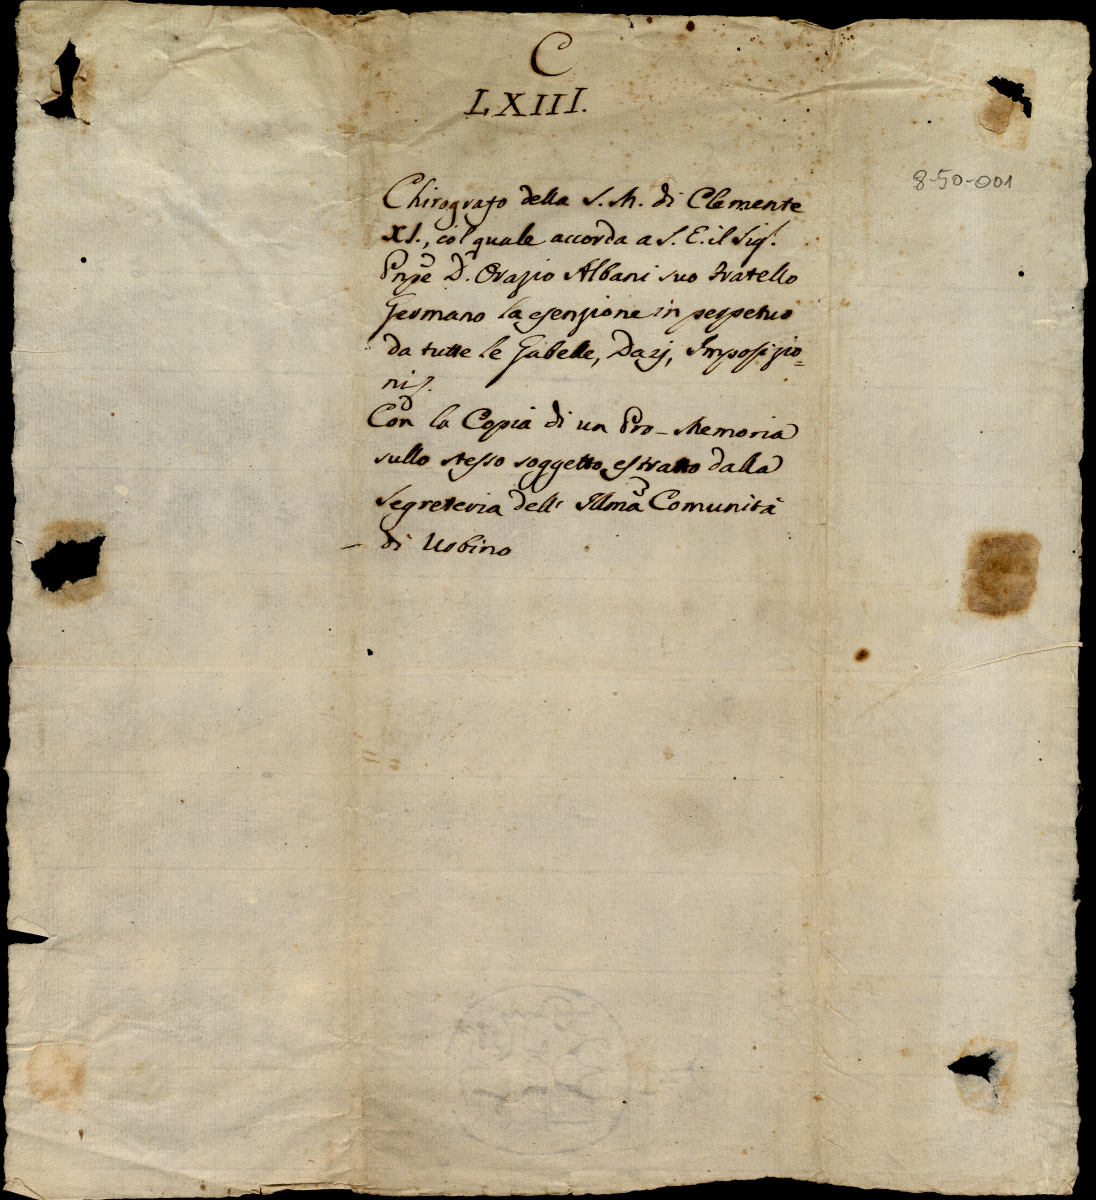 C
LXIII.
8-50-001
Chirografo della S. M. di Clemente
XI., col quale accorda a S. E. il Sig.r
Pnpe D. Orazio Albani suo Fratello
Germano la esenzione in perpetuo
da tutte le Gabelle, Dazj, Imposizio=
ni
Con la Copia di un Pro-Memoria
sullo stesso soggetto estratto dalla
Segreteria dell' Illma Comunità
di Urbino